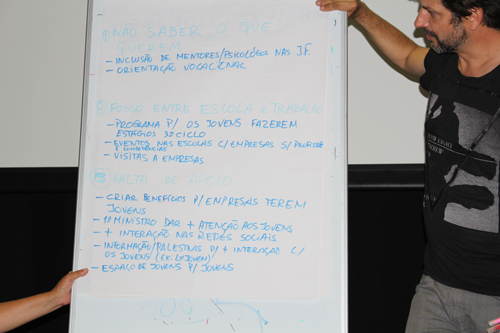 ① NÃO SABER O QUE
QUEREM
- INCLUSÃO DE MENTORES/PSICÓLOGOS NAS J.F.
- ORIENTAÇÃO VOCACIONAL
② FOSSO ENTRE ESCOLA E TRABALHO
- PROGRAMA P/ OS JOVENS FAZEREM
ESTÁGIOS 3º CICLO
- EVENTOS NAS ESCOLAS C/ EMPRESAS S/
E COMPETÊNCIAS
- VISITAS A EMPRESAS
③ FALTA DE APOIO
- CRIAR BENEFÍCIOS P/ EMPRESAS TEREM
JOVENS
- 1º MINISTRO DAR + ATENÇÃO AOS JOVENS
- + INTERAÇÃO NAS REDES SOCIAIS
- INFORMAÇÃO/PALESTRAS P/ + INTERAÇÃO C/
OS JOVENS (EX: LXJOVEM)
- ESPAÇO DE JOVENS P/ JOVENS